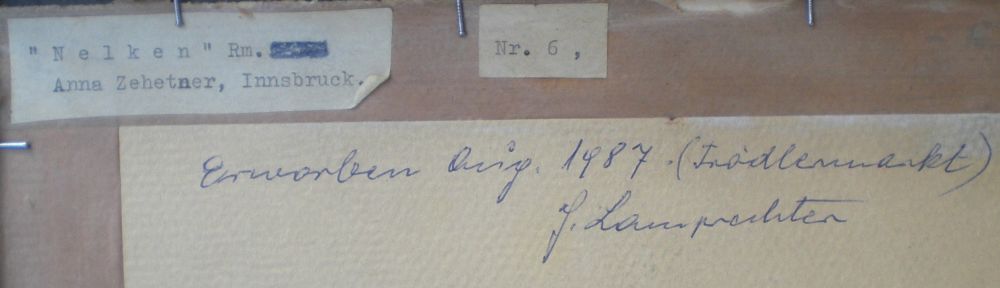 "Nelken" Rm.
Anna Zehetner, Innsbruck.
Nr. 6,
Erworben Aug. 1987. (Trödlermarkt)
J. Lamprechter